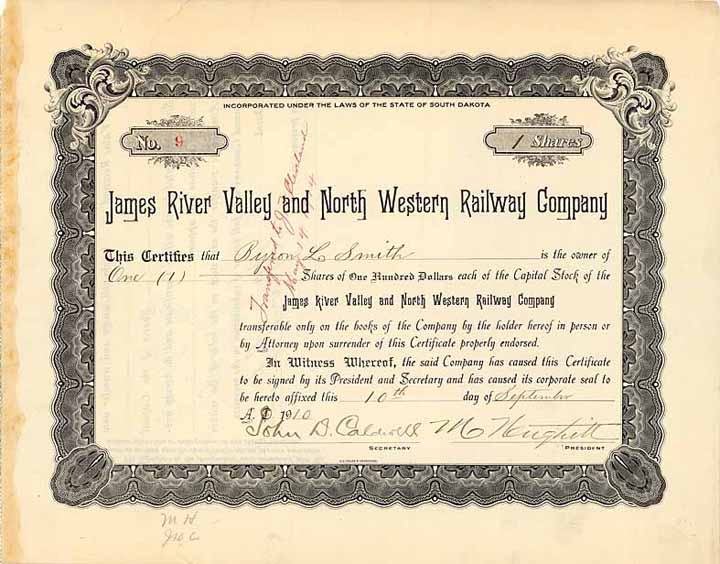 INCORPORATED UNDER THE LAWS OF THE STATE OF SOUTH DAKOTA
No. 9
1 Shares
James River Valley and North Western Railway Company
This Certifies that Byron L. Smith is the owner of
One (1) Shares of One Hundred Dollars each of the Capital Stock of the
James River Valley and North Western Railway Company
transferable only on the books of the Company by the holder hereof in person or
by Attorney upon surrender of this Certificate properly endorsed.
In Witness Whereof, the said Company has caused this Certificate
to be signed by its President and Secretary and has caused its corporate seal to
be hereto affixed this 10th day of September
A. D. 1910
John D. Caldwell M Hughitt
SECRETARY PRESIDENT
M. H.
Jno. C.